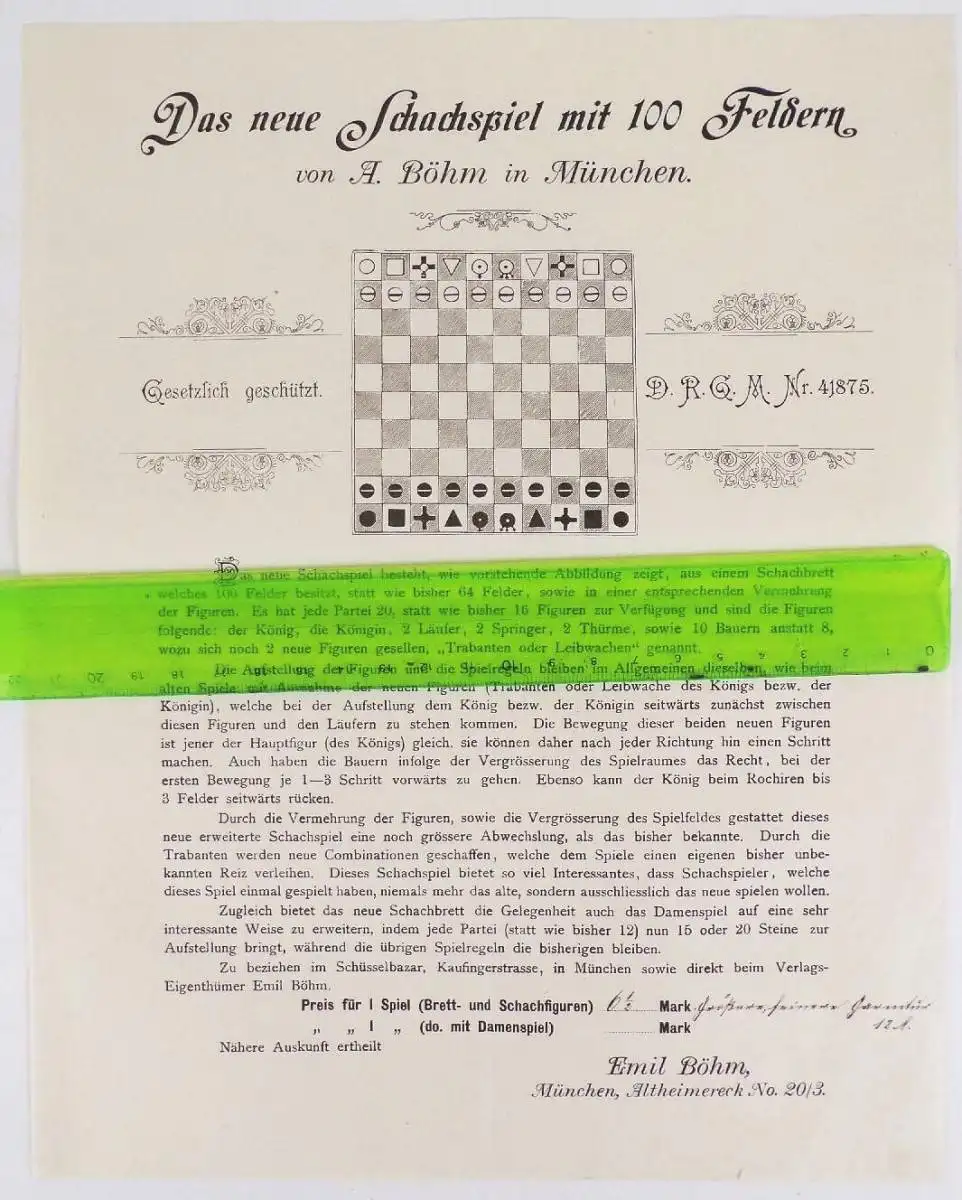 Das neue Schachspiel mit 100 Feldern
von A. Böhm in München.
Gesetzlich geschützt.
D. R. G. M. Nr. 41875.
Das neue Schachspiel besteht, wie vorstehende Abbildung zeigt, aus einem Schachbrett
welches 100 Felder besitzt, statt wie bisher 64 Felder, sowie in einer entsprechenden Vermehrung
der Figuren. Es hat jede Partei 20, statt wie bisher 16 Figuren zur Verfügung und sind die Figuren
folgende: der König, die Königin, 2 Läufer, 2 Springer, 2 Thürme, sowie 10 Bauern anstatt 8,
wozu sich noch 2 neue Figuren gesellen, „Trabanten oder Leibwachen“ genannt.
0 1 2 3 4 5 6 7 8 9 10 11 12 13 14 15 16 17 18 19 20
Die Aufstellung der Figuren und die Spielregeln bleiben im Allgemeinen dieselben, wie beim
alten Spiele mit Ausnahme der neuen Figuren (Trabanten oder Leibwache des Königs bezw. der
Königin), welche bei der Aufstellung dem König bezw. der Königin seitwärts zunächst zwischen
diesen Figuren und den Läufern zu stehen kommen. Die Bewegung dieser beiden neuen Figuren
ist jener der Hauptfigur (des Königs) gleich. sie können daher nach jeder Richtung hin einen Schritt
machen. Auch haben die Bauern infolge der Vergrösserung des Spielraumes das Recht, bei der
ersten Bewegung je 1—3 Schritt vorwärts zu gehen. Ebenso kann der König beim Rochiren bis
3 Felder seitwärts rücken.
Durch die Vermehrung der Figuren, sowie die Vergrösserung des Spielfeldes gestattet dieses
neue erweiterte Schachspiel eine noch grössere Abwechslung, als das bisher bekannte. Durch die
Trabanten werden neue Combinationen geschaffen, welche dem Spiele einen eigenen bisher unbe-
kannten Reiz verleihen. Dieses Schachspiel bietet so viel Interessantes, dass Schachspieler, welche
dieses Spiel einmal gespielt haben, niemals mehr das alte, sondern ausschliesslich das neue spielen wollen.
Zugleich bietet das neue Schachbrett die Gelegenheit auch das Damenspiel auf eine sehr
interessante Weise zu erweitern, indem jede Partei (statt wie bisher 12) nun 15 oder 20 Steine zur
Aufstellung bringt, während die übrigen Spielregeln die bisherigen bleiben.
Zu beziehen im Schüsselbazar, Kaufingerstrasse, in München sowie direkt beim Verlags-
Eigenthümer Emil Böhm.
Preis für 1 Spiel (Brett- und Schachfiguren) 6½ Mark größere, feinere Garnitur
„ „ 1 „ (do. mit Damenspiel) Mark 12 M.
Nähere Auskunft ertheilt
Emil Böhm,
München, Altheimereck No. 20/3.